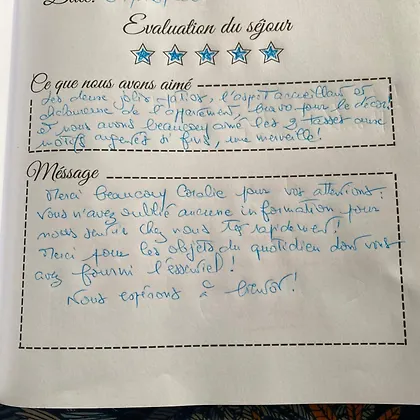 Date:
Evaluation du séjour
Ce que nous avons aimé
Les deux jolis patios, l'aspect accueillant et
chaleureux de l'appartement, bravo pour le décor
et nous avons beaucoup aimé les 2 tasses aux
motifs argentés si fins, une merveille!
Méssage
Merci beaucoup Coralie pour vos attentions:
vous n'avez oublié aucune information pour
nous sentir chez nous très rapidement!
Merci pour les objets du quotidien dont vous
avez fourni l'essentiel!
Nous espérons à bientôt!